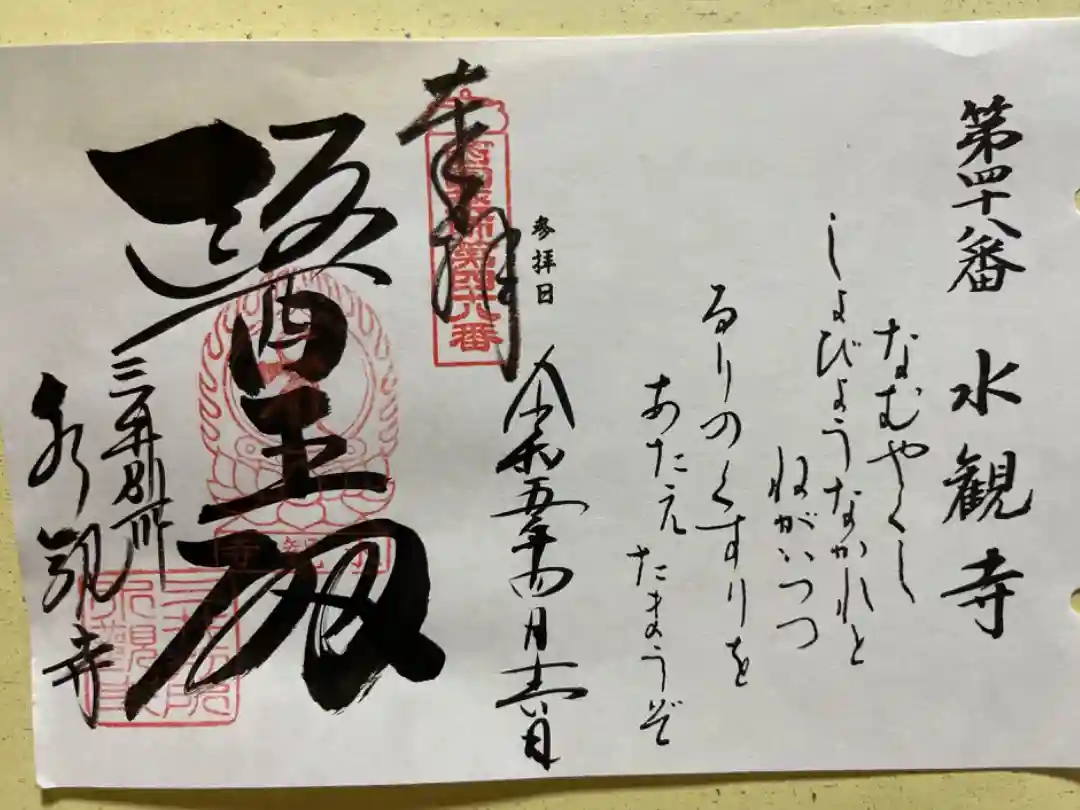 第四十八番 水観寺
なむやくし
しょびょうなかれと
ねがいつつ
るりのくすりを
あたえたまうぞ
参拝日 令和五年四月十六日
奉拝
西国薬師第四十八番
醫王殿
三井別所
水観寺